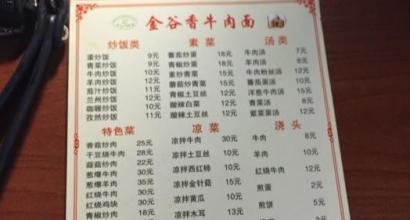 金谷香牛肉面
炒饭类 素菜 汤类
蛋炒饭 9元 番茄炒蛋 18元 牛肉汤 7元
青菜炒饭 9元 青椒炒蛋 18元 羊肉汤 8元
牛肉炒饭 10元 素炒青菜 15元 牛肉粉丝汤 12元
羊肉炒饭 12元 蘑菇炒青菜 15元 番茄蛋汤 12元
茄汁炒饭 11元 青椒土豆丝 12元 洋葱牛肉汤 15元
兰州炒饭 12元 酸辣土豆丝 12元 青菜汤 8元
咖喱炒饭 10元 酸辣白菜 12元 紫菜蛋汤 12元
孜然炒饭 11元 麻婆豆腐 12元
特色菜 凉菜 浇头
香菇炒肉 25元 凉拌牛肉 30元 牛肉 8元
干豆角烧肉 28元 凉拌土豆丝 10元 羊肉 10元
蘑菇炒肉 22元 凉拌西红柿 10元
煎爆羊肉 35元 凉拌金针菇 15元 煎蛋 2元
红烧鸡块 30元 凉拌黄瓜 10元 煎饼 5元
青椒炒肉 18元 凉拌木耳 13元